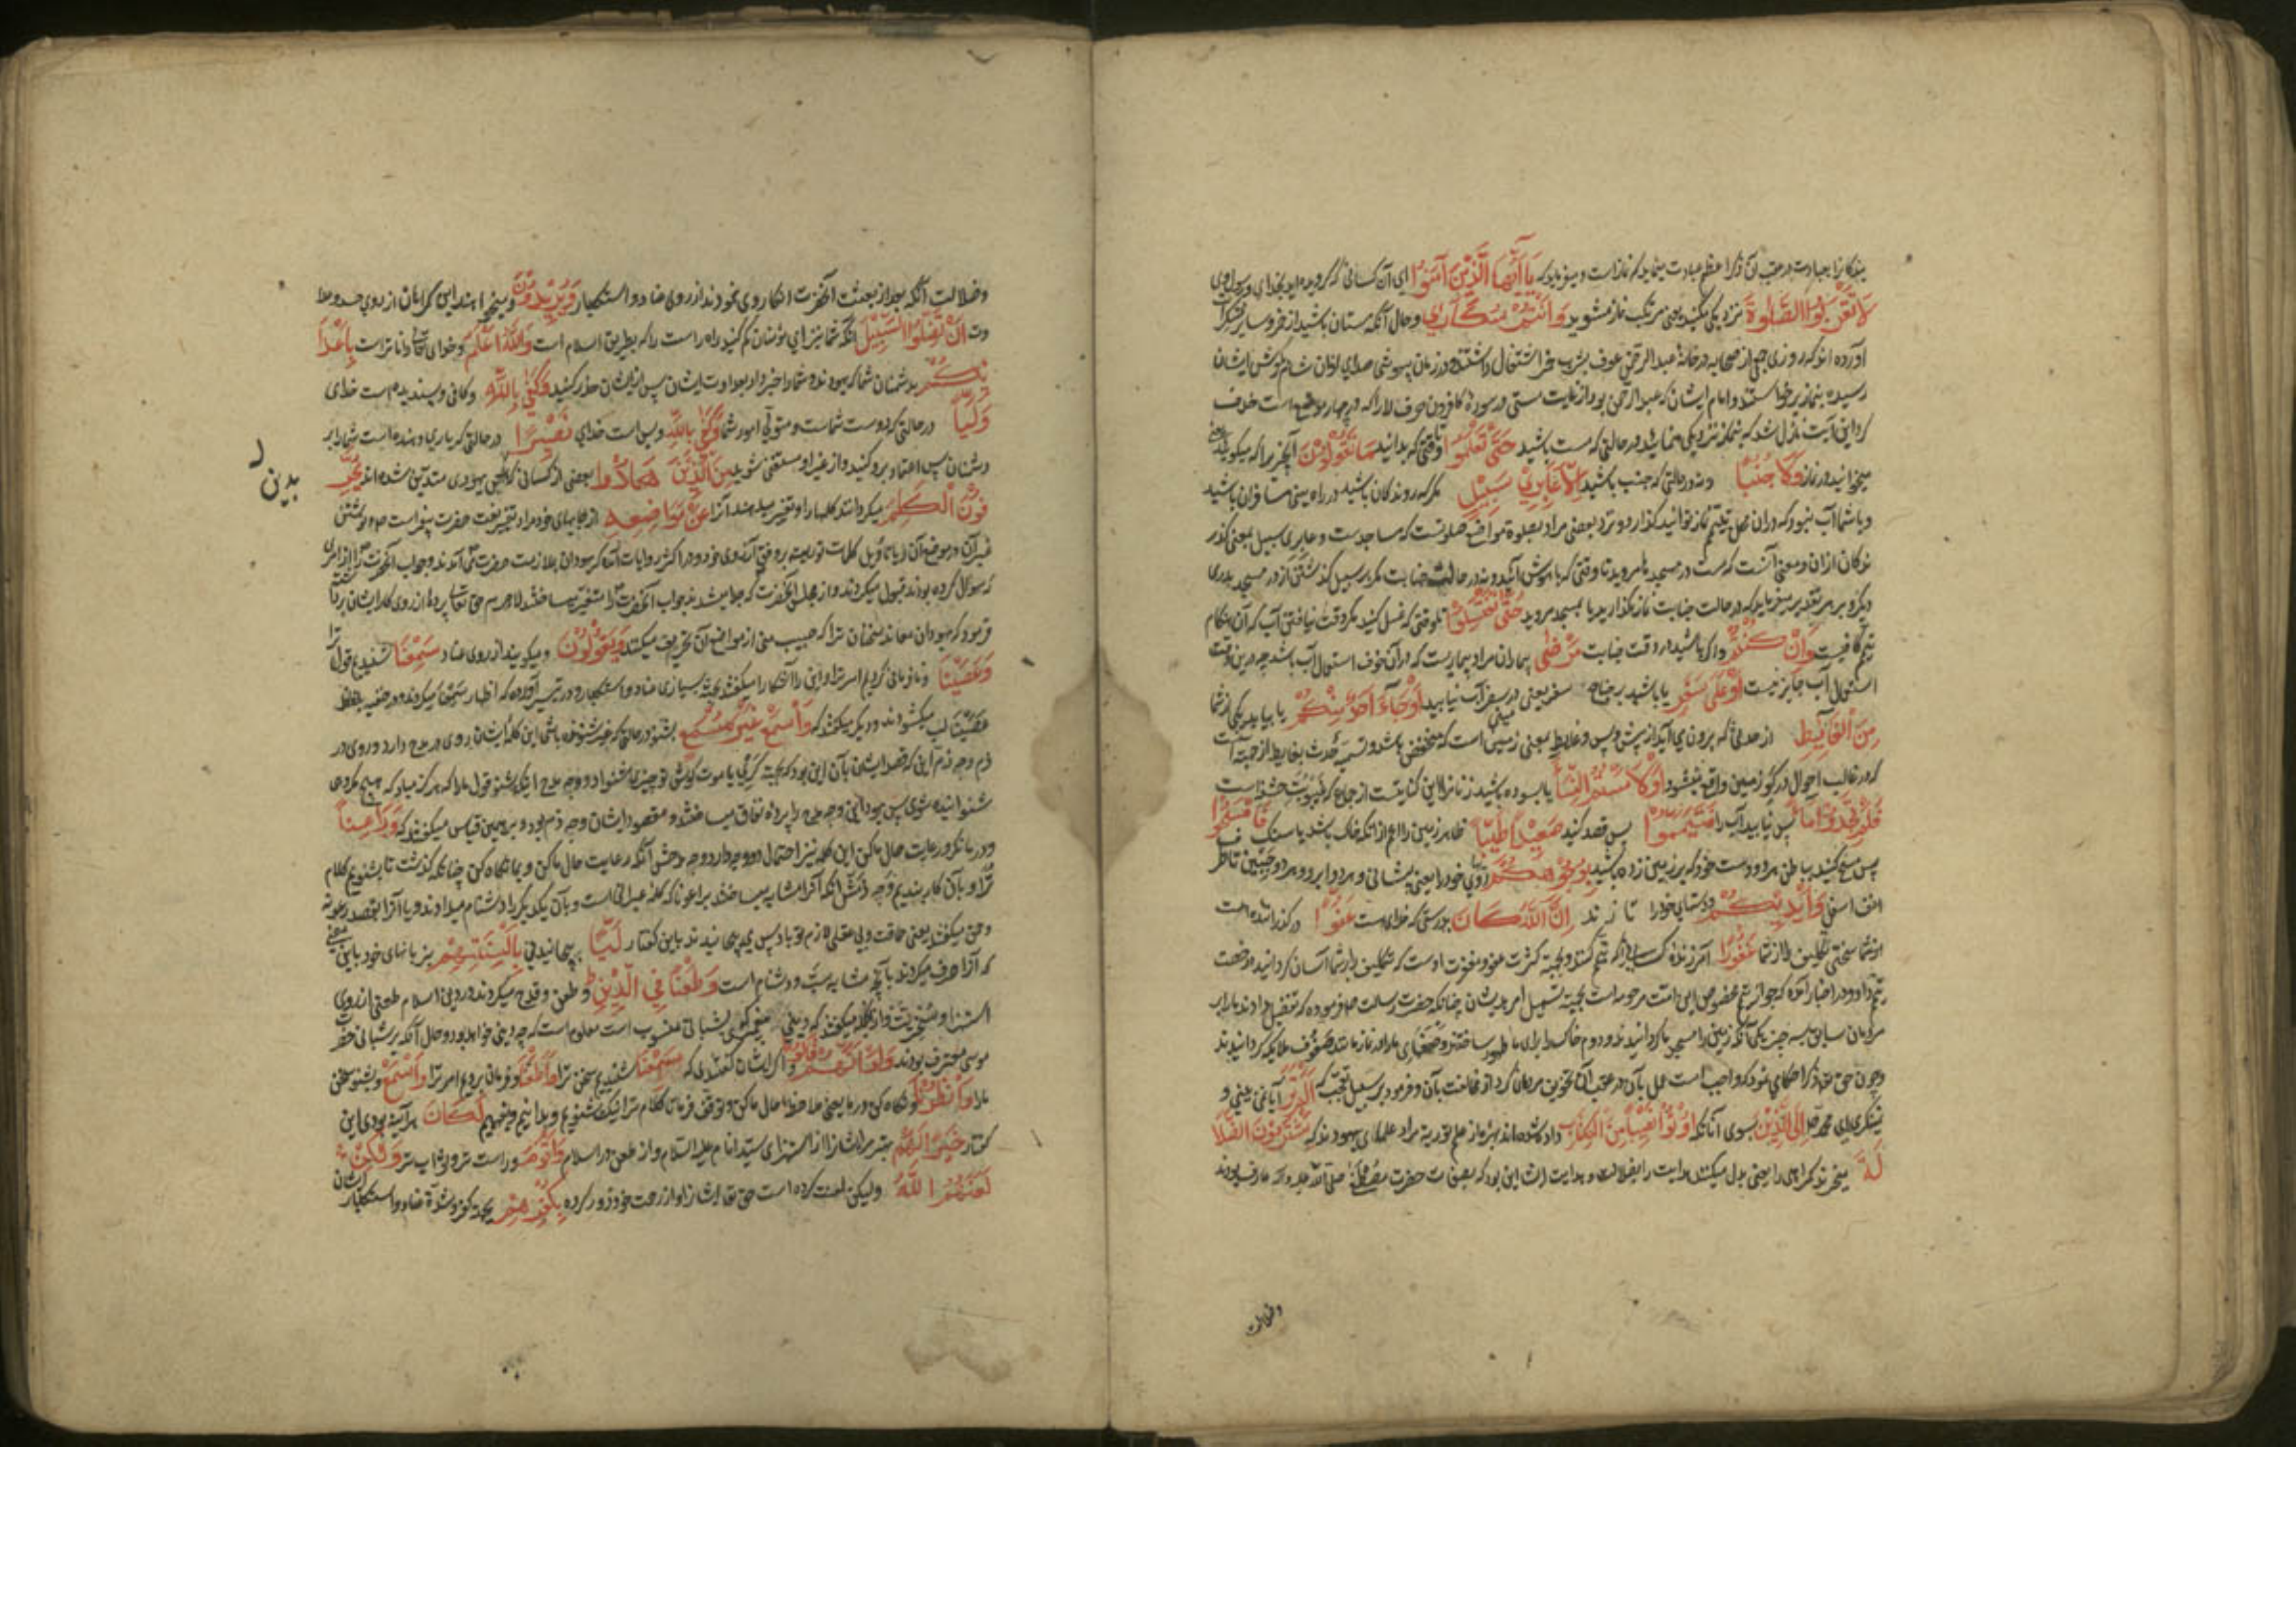 بندگانرا بعبادت در عقب آن ذکر اعظم عبادت مینماید که نماز است و میفرماید که يَا أَيُّهَا الَّذِينَ آمَنُوا ای آن کسانی که گرویده اید بخدای و رسول وی
لَا تَقْرَبُوا الصَّلَوٰةَ نزدیکی مکنید یعنی مرتکب نماز مشوید وَأَنْتُمْ سُكَارَىٰ و حال آنکه مستان باشید از خمر و سایر مسکرات
آورده اند که روزی جمعی از صحابه در خانه عبد الرحمن عوف بشرب خمر اشتغال داشتند در زمان بیهوشی صدای اذان شام بگوش ایشان
رسیده بنماز برخواستند و امام ایشان که عبد الرحمن بود از غایت مستی در سوره کافرون حرف لا را که در چهار موضع است حذف
کرد این آیت نازل شد که بنماز نزدیکی منمائید در حالتی که مست باشید حَتَّىٰ تَعْلَمُوا تا وقتی که بدانید مَا تَقُولُونَ آنچیز را که میگوئید
میخوانید در نماز وَلَا جُنُبًا و نه در حالتی که جنب باشید إِلَّا عَابِرِي سَبِيلٍ مگر که روندگان باشید در راه یعنی مسافران باشید
و با شما آب نبود که در آن محل بتیمم نماز توانید گذارد و نزد بعضی مراد بصلوة مواضع صلوتست که مساجدست و عابری سبیل بمعنی گذر
ندگان از آن و معنی آنست که مست در مسجد مروید تا وقتی که با هوش آئید و نه در حالت جنابت مگر بر سبیل گذشتن از در مسجد بدری
دیگر و بر هر تقدیر میفرماید که در حالت جنابت نماز مگذارید یا بمسجد مروید حَتَّىٰ تَغْتَسِلُوا تا وقتی که غسل کنید مگر وقت نیافتن آب که آن هنگام
تیمم کافیست وَإِنْ كُنْتُمْ و اگر باشید در وقت جنابت مَرْضَىٰ بیماران مراد بیماریست که در آن خوف استعمال آب باشد چه درین وقت
استعمال آب جایز نیست أَوْ عَلَىٰ سَفَرٍ یا باشید بر جناح سفر یعنی در سفر آب نیابید أَوْ جَاءَ أَحَدٌ مِنْكُمْ یا بیاید یکی از شما
مِنَ الْغَائِطِ از حدثی که برون می آید از پیش و پس و غایط بمعنی زمینی است که منخفض باشد و تسمیه حدث بغایط از جهت آنست
که در غالب احوال در گو زمین واقع میشود أَوْ لَامَسْتُمُ النِّسَاءَ یا بسوده باشید زنانرا این کنایتست از جماع که غیبوبت حشفه است
فَلَمْ تَجِدُوا مَاءً پس نیابید آب را فَتَيَمَّمُوا پس قصد کنید صَعِيدًا طَيِّبًا ظاهر زمین را اعم از آنکه خاک باشد یا سنگ فَامْسَحُوا
پس مسح کنید بباطن هر دو دست خود که بر زمین زده باشید بِوُجُوهِكُمْ روی خود را یعنی پیشانی و هر دو ابرو و هر دو جبین تا طرف
انف اسفل وَأَيْدِيكُمْ و دستهای خود را تا زند إِنَّ اللَّهَ كَانَ بدرستی که خدای هست عَفُوًّا درگذرانیده است
از شما سختی تکلیف را از شما غَفُورًا آمرزنده کسانی را که تیمم کنند و بجهة کثرت عفو و مغفرت اوست که تکلیف را بر شما آسان گردانید و رخصت
تیمم داد و در اخبار آمده که جواز تیمم مخصوص این امت مرحومه است بجهة تسهیل امر بدیشان چنانکه حضرت رسالت صم فرموده که تفضیل دادند ما را بر
مردمان سابق بسه چیز یکی آنکه زمین را مسجد ما گردانیدند و دوم خاک را برای ما طهور ساختند و صفهای ما را در نماز مانند صفوف ملایکه گردانیدند
و چون حق تعالی ذکر احکامی نمود که واجب است عمل بآن در عقب آن تخویف مردمان کرد از مخالفت بآن و فرمود بر سبیل تعجب که أَلَمْ تَرَ آیا نمی بینی و
نمینگری ای محمد صلعم إِلَى الَّذِينَ بسوی آنانکه أُوتُوا نَصِيبًا مِنَ الْكِتَابِ داده شده اند بهره از علم توریة مراد علمای یهودند که يَشْتَرُونَ الضَّلَا
لَةَ میخرند گمراهی را یعنی بدل میکنند هدایت را بضلالت و هدایت ایشان این بود که بصفات حضرت مصطفی صلی الله علیه و آله عارف بودند
وضلالت
وضلالت آنکه بعد از بعثت آنحضرت انکار وی نمودند از روی عناد و استکبار وَيُرِيدُونَ و میخواهند این گمراهان از روی حسد و عدا
وت أَنْ تَضِلُّوا السَّبِيلَ آنکه شما نیز ای مؤمنان گم کنید راه راست را که طریق اسلام است وَاللَّهُ أَعْلَمُ و خدای تعالی دانا تر است بِأَعْدَا
ئِكُمْ بدشمنان شما که یهودند و شما را خبر داد بعداوت ایشان پس از ایشان حذر کنید وَكَفَىٰ بِاللَّهِ و کافی و بسندیده است خدای
وَلِيًّا در حالتی که دوست شماست و متولی امور شما وَكَفَىٰ بِاللَّهِ و بس است خدای نَصِيرًا در حالتی که یاری دهنده است شما را بر
دشمنان پس اعتماد برو کنید و از غیر او مستغنی شوید مِنَ الَّذِينَ هَادُوا بعضی از کسانی که بدین یهودی متدین شده اند يُحَرِّ
بدین
فُونَ الْكَلِمَ میگردانند کلمها را و تغییر میدهند آنرا عَنْ مَوَاضِعِهِ از جایهای خود مراد تغییر نعت حضرت پیغمبر است صم و نوشتن
غیر آن در موضع آن یا تاویل کلمات توریة بر وفق آرزوی خود و در اکثر روایات آمده که یهودان بملازمت حضرت می آمدند و جواب آنحضرت را از امری
که سوال کرده بودند قبول میکردند و از مجلس آنحضرت که جدا میشدند جواب آنحضرت را متغیر میساختند لاجرم حق تعالی پرده از روی کار ایشان برداشته
فرمود که یهودان معاند سخنان ترا که حبیب منی از مواضع آن تحریف میکنند وَيَقُولُونَ و میگویند از روی عناد سَمِعْنَا شنیدیم قول ترا
وَعَصَيْنَا و نافرمانی کردیم امر ترا و این را آشکارا میگفتند بجهة بسیاری عناد و استکبار و در تیسیر آورده که اظهار سمعنا میکردند و در خفیه بلفظ
عصینا لب میگشودند و دیگر میگفتند که وَاسْمَعْ غَيْرَ مُسْمَعٍ بشنو در حالتی که غیر شنونده باشی این کلمه ایشان روی در مدح دارد و روی در
ذم وجه ذم آنی که قصد ایشان بآن این بود که بجهة کری یا موت گوش تو چیزی مشنواد و وجه مدح اینکه بشنو قول ما را که هرگز مباد که هیچ مکروهی
شنوانیده شوی پس یهود این وجه مدح را پرده نفاق میساختند و مقصود ایشان وجه ذم بود و بر همین قیاس میگفتند که وَرَاعِنَا
و در ما نگر و رعایت حال ما کن این کلمه نیز احتمال دو وجه دارد وجه مدحش آنکه رعایت حال ما کن و بما نگاه کن چنانکه گذشت تا بشنویم کلام
ترا و بآن کار بندیم وجه ذمش آنکه آنرا مشابه میساختند براعونا که کلمه عبرانی است و بآن یکدیگر را دشنام میدادند و یا آنرا بقصد رعونة
وحمق میگفتند یعنی حماقت و بی عقلی لازم تو باد پس می پیچانیدند باین گفتار لَيًّا پیچانیدنی بِأَلْسِنَتِهِمْ بزبانهای خود باین معنی
که آنرا صرف میکردند بآنچه مشابه سب و دشنام است وَطَعْنًا فِي الدِّينِ و طعن و قدح میکردند در دین اسلام طعنی از روی
استهزا و سخریت و آنکه میگفتند که دینی منسوب است معلوم است که چه دینی خواهد بود و حال آنکه بر شبانی حضرت
موسی معترف بودند وَلَوْ أَنَّهُمْ قَالُوا و اگر ایشان گفتندی که سَمِعْنَا شنیدیم سخن ترا وَأَطَعْنَا و فرمان بردیم امر ترا وَاسْمَعْ و بشنو سخن
ما را وَانْظُرْنَا و نگاه کن در ما یعنی ملاحظه حال ما کن و توقف فرمای تا کلام ترا نیک بشنویم و بدانیم و بفهمیم لَكَانَ هر آینه بودی این
گفتار خَيْرًا لَهُمْ بهتر مر ایشانرا از استهزای سید انام علیه السلام و از طعن در اسلام وَأَقْوَمَ و راست تر و صواب تر وَلَٰكِنْ
لَعَنَهُمُ اللَّهُ ولیکن لعنت کرده است حق تعالی ایشانرا و از رحمت خود دور کرده بِكُفْرِهِمْ بجهة کفر و شدة عناد و استکبار ایشان